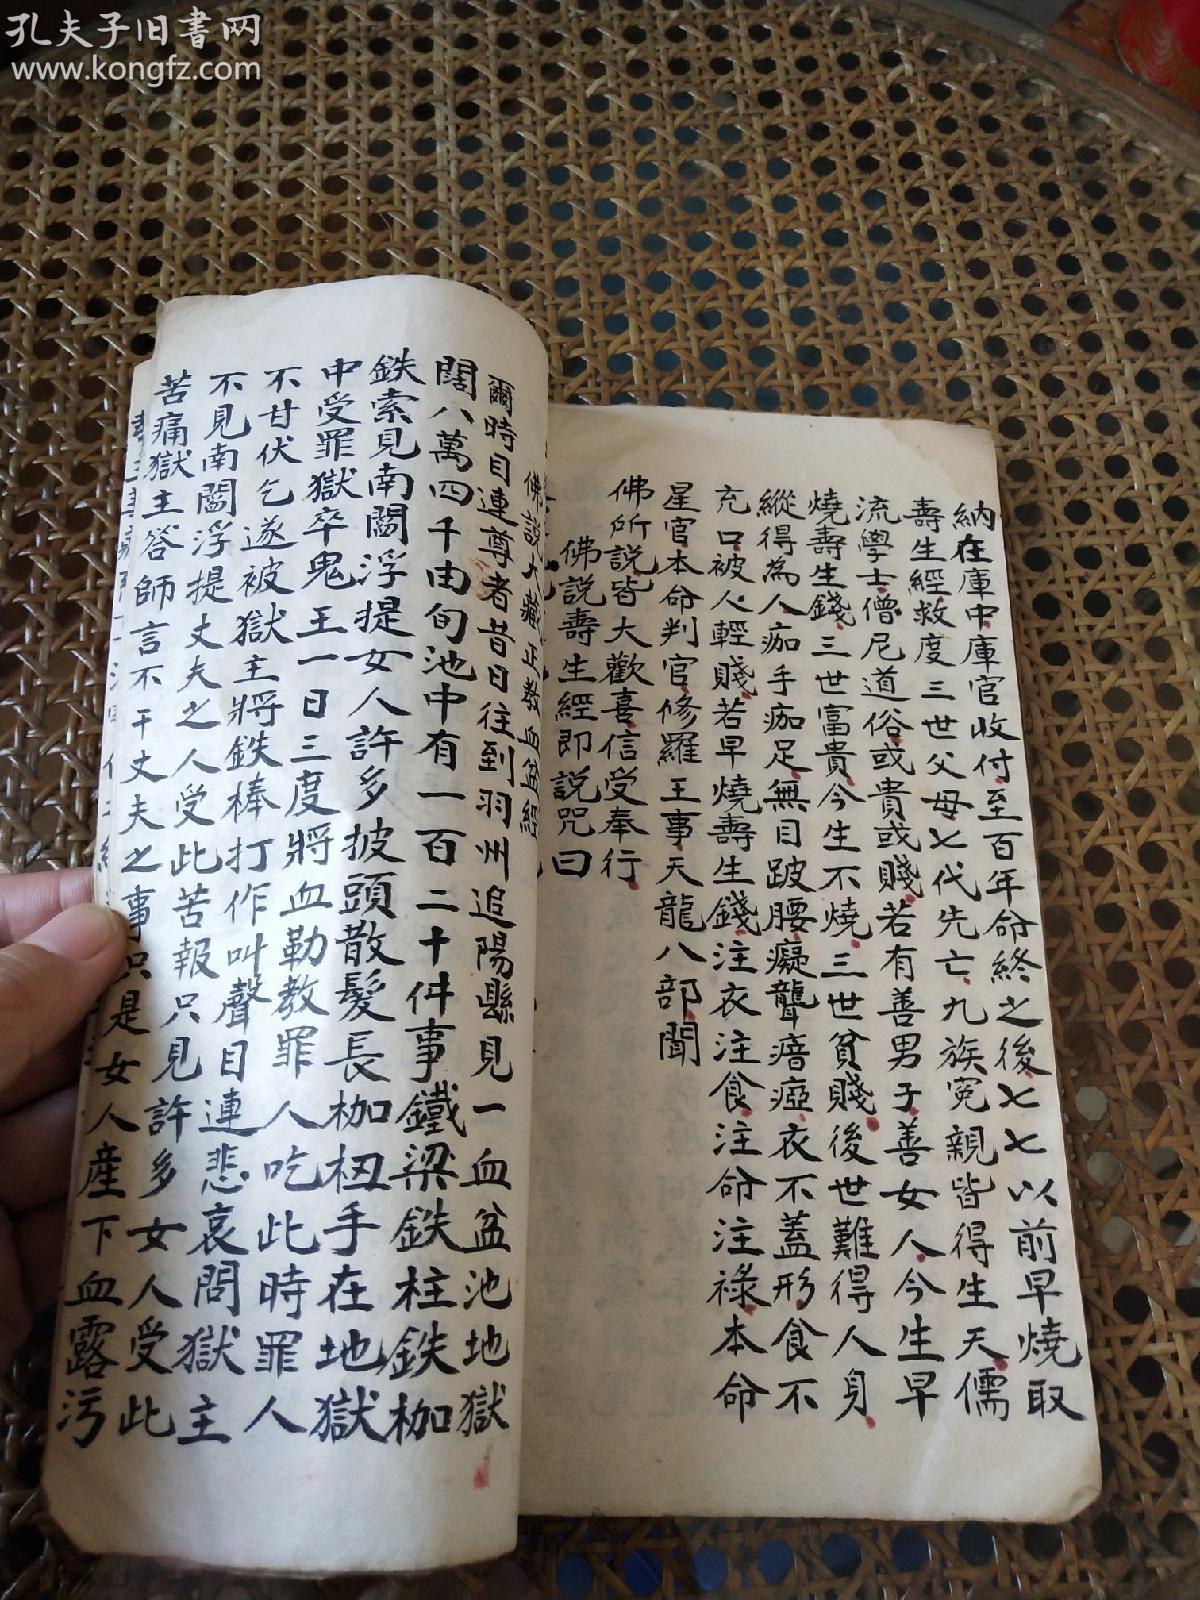 孔夫子旧書网
www.kongfz.com
納在庫中庫官收付至百年命終之後七七以前早燒取
壽生經救度三世父母七代先亡九族冤親皆得生天儒
流學士僧尼道俗或貴或賤若有善男子善女人今生早
燒壽生錢三世富貴今生不燒三世貧賤後世難得人身
縱得為人痂手痂足無目跛腰癡聾瘖瘂衣不蓋形食不
充口被人輕賤若早燒壽生錢注衣注食注命注祿本命
星官本命判官修羅王事天龍八部聞
佛所説皆大歡喜信受奉行
佛説壽生經即説咒曰
佛説大藏正教血盆經
爾時目連尊者昔日往到羽州追陽縣見一血盆池地獄
闊八萬四千由旬池中有一百二十件事鐵梁鉄柱鉄枷
鉄索見南閻浮提女人許多披頭散髮長枷杻手在地獄
中受罪獄卒鬼王一日三度將血勒教罪人吃此時罪人
不甘伏乞遂被獄主將鉄棒打作叫聲目連悲哀問獄主
不見南閻浮提丈夫之人受此苦報只見許多女人受此
苦痛獄主答師言不干丈夫之事只是女人産下血露污